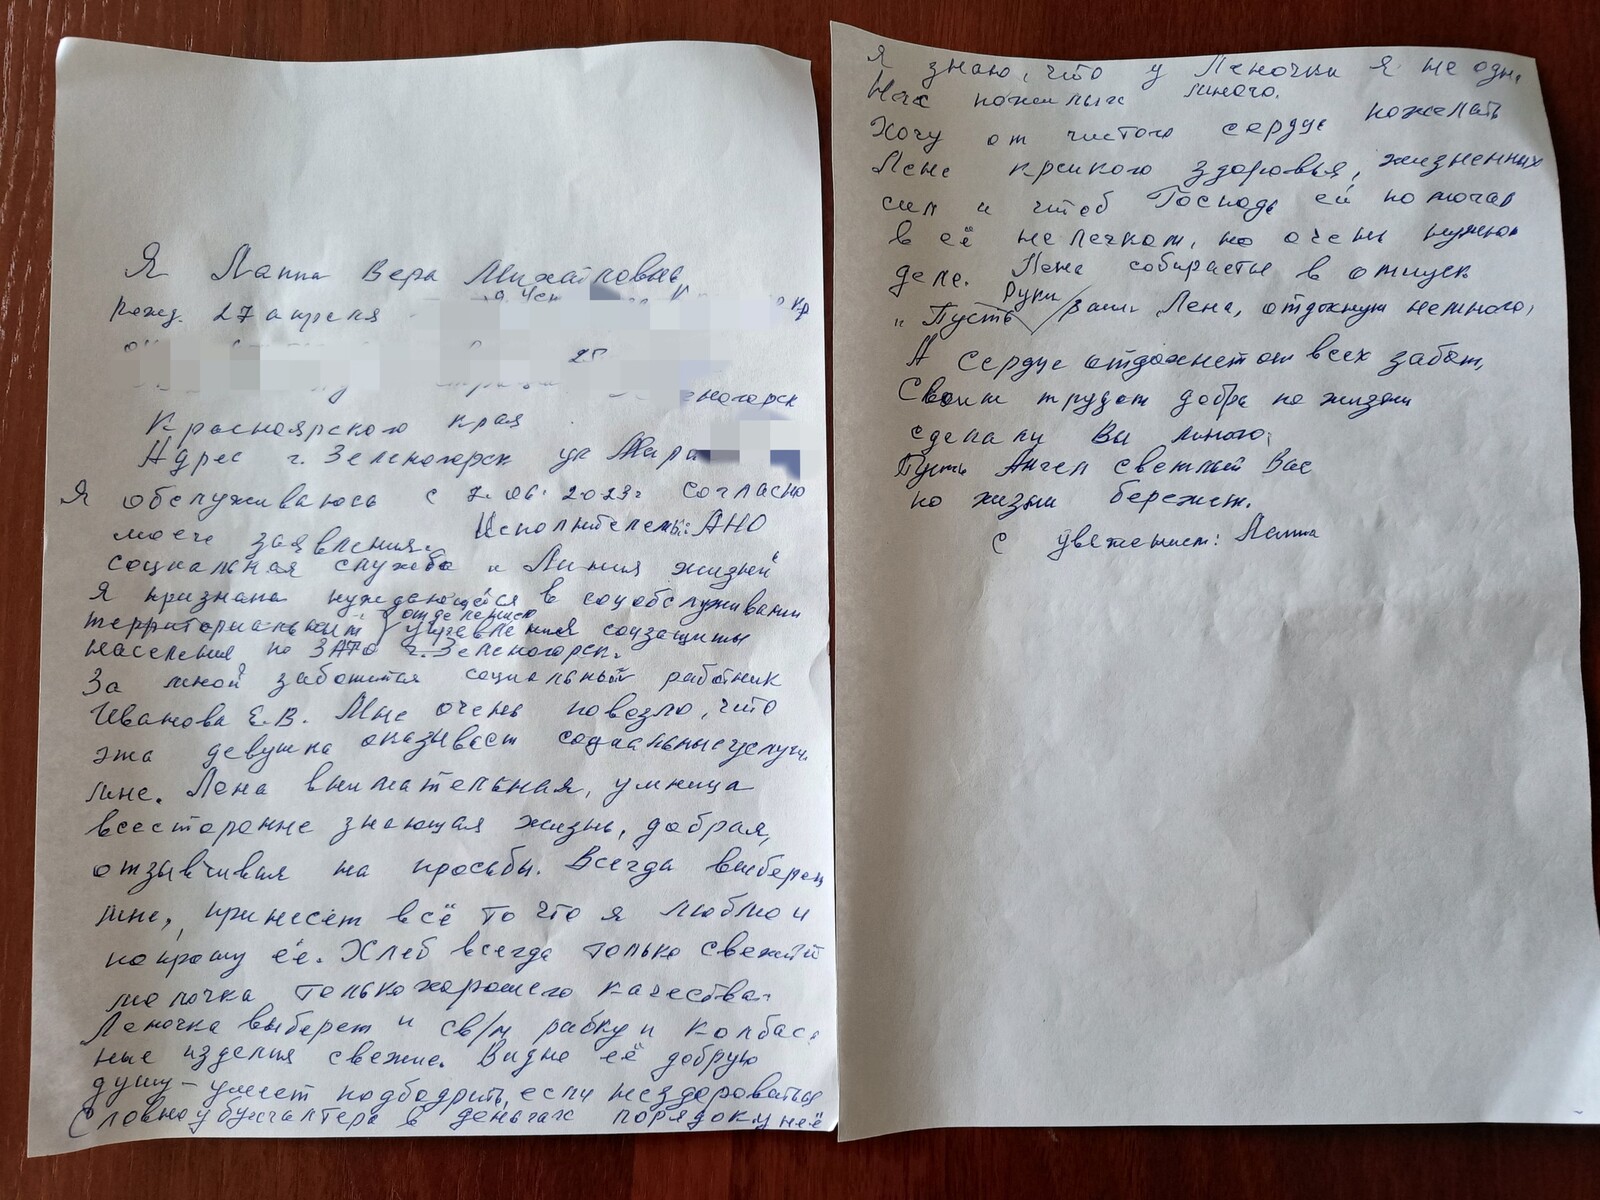 Я Лаппа Вера Михайловна,
рожд. 27 апреля
25
еногорск
Красноярского края
Адрес г. Зеленогорск ул Мира
Я обслуживаюсь с 7.06.2023г согласно
моего заявления. Исполнитель: АНО
социальная служба "Линия жизни"
Я признана нуждающейся в соцобслуживании
территориальным отделением управления соцзащиты
населения по ЗАТО г. Зеленогорск.
За мной заботится социальный работник
Иванова Е.В. Мне очень повезло, что
эта девушка оказывает социальные услуги
мне. Лена внимательная, умница
всесторонне знающая жизнь, добрая,
отзывчивая на просьбы. Всегда выберет
мне, принесёт всё то что я люблю и
попрошу её. Хлеб всегда только свежий
молочка только хорошего качества.
Леночка выберет и св/м рыбку и колбас
ные изделия свежие. Видне её добрую
душу – умеет подбодрить, если нездороваться
Словно у бухгалтера в деньгах порядок у неё
Я знаю, что у Леночки я не одн.
Нас пожилых много.
Хочу от чистого сердце пожелать
Лене крепкого здоровья, жизненных
сил и чтоб Господь ей помогал
в её нелегком, но очень нужном
деле. Лена собирается в отпуск
"Пусть руки Ваши Лена, отдохнут немного,
А сердце отдохнет от всех забот,
Своим трудом добра по жизни
сделали Вы много,
Пусть Ангел светлый Вас
по жизни бережет.
С уважением: Лаппа